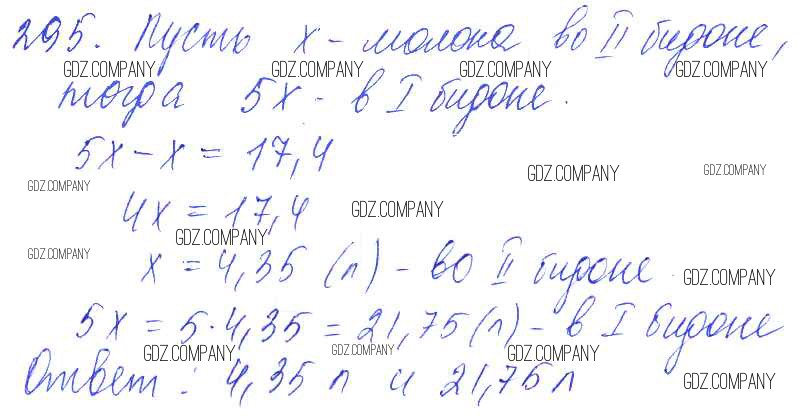 295. Пусть x - молока во II бидоне,
GDZ.COMPANY GDZ.COMPANY GDZ.COMPANY GDZ.COMPANY
тогда 5x - в I бидоне.
5x - x = 17,4
GDZ.COMPANY GDZ.COMPANY
GDZ.COMPANY
4x = 17,4 GDZ.COMPANY
GDZ.COMPANY
GDZ.COMPANY
x = 4,35 (л) - во II бидоне GDZ.COMPANY
5x = 5·4,35 = 21,75 (л) - в I бидоне
GDZ.COMPANY GDZ.COMPANY GDZ.COMPANY
Ответ: 4,35 л и 21,75 л GDZ.COMPANY